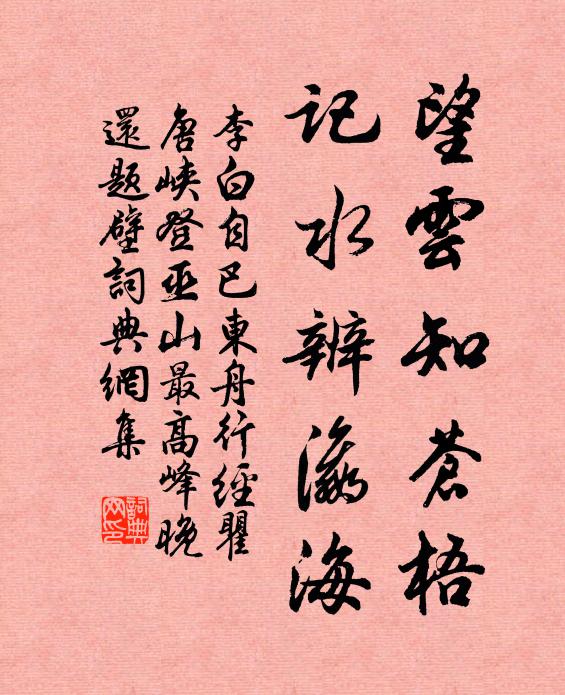 望雲知蒼梧
記水辨瀛海
李白自巴東舟行經瞿
唐峽登巫山最高峰晚
還題壁詞典網集
詞典
网印